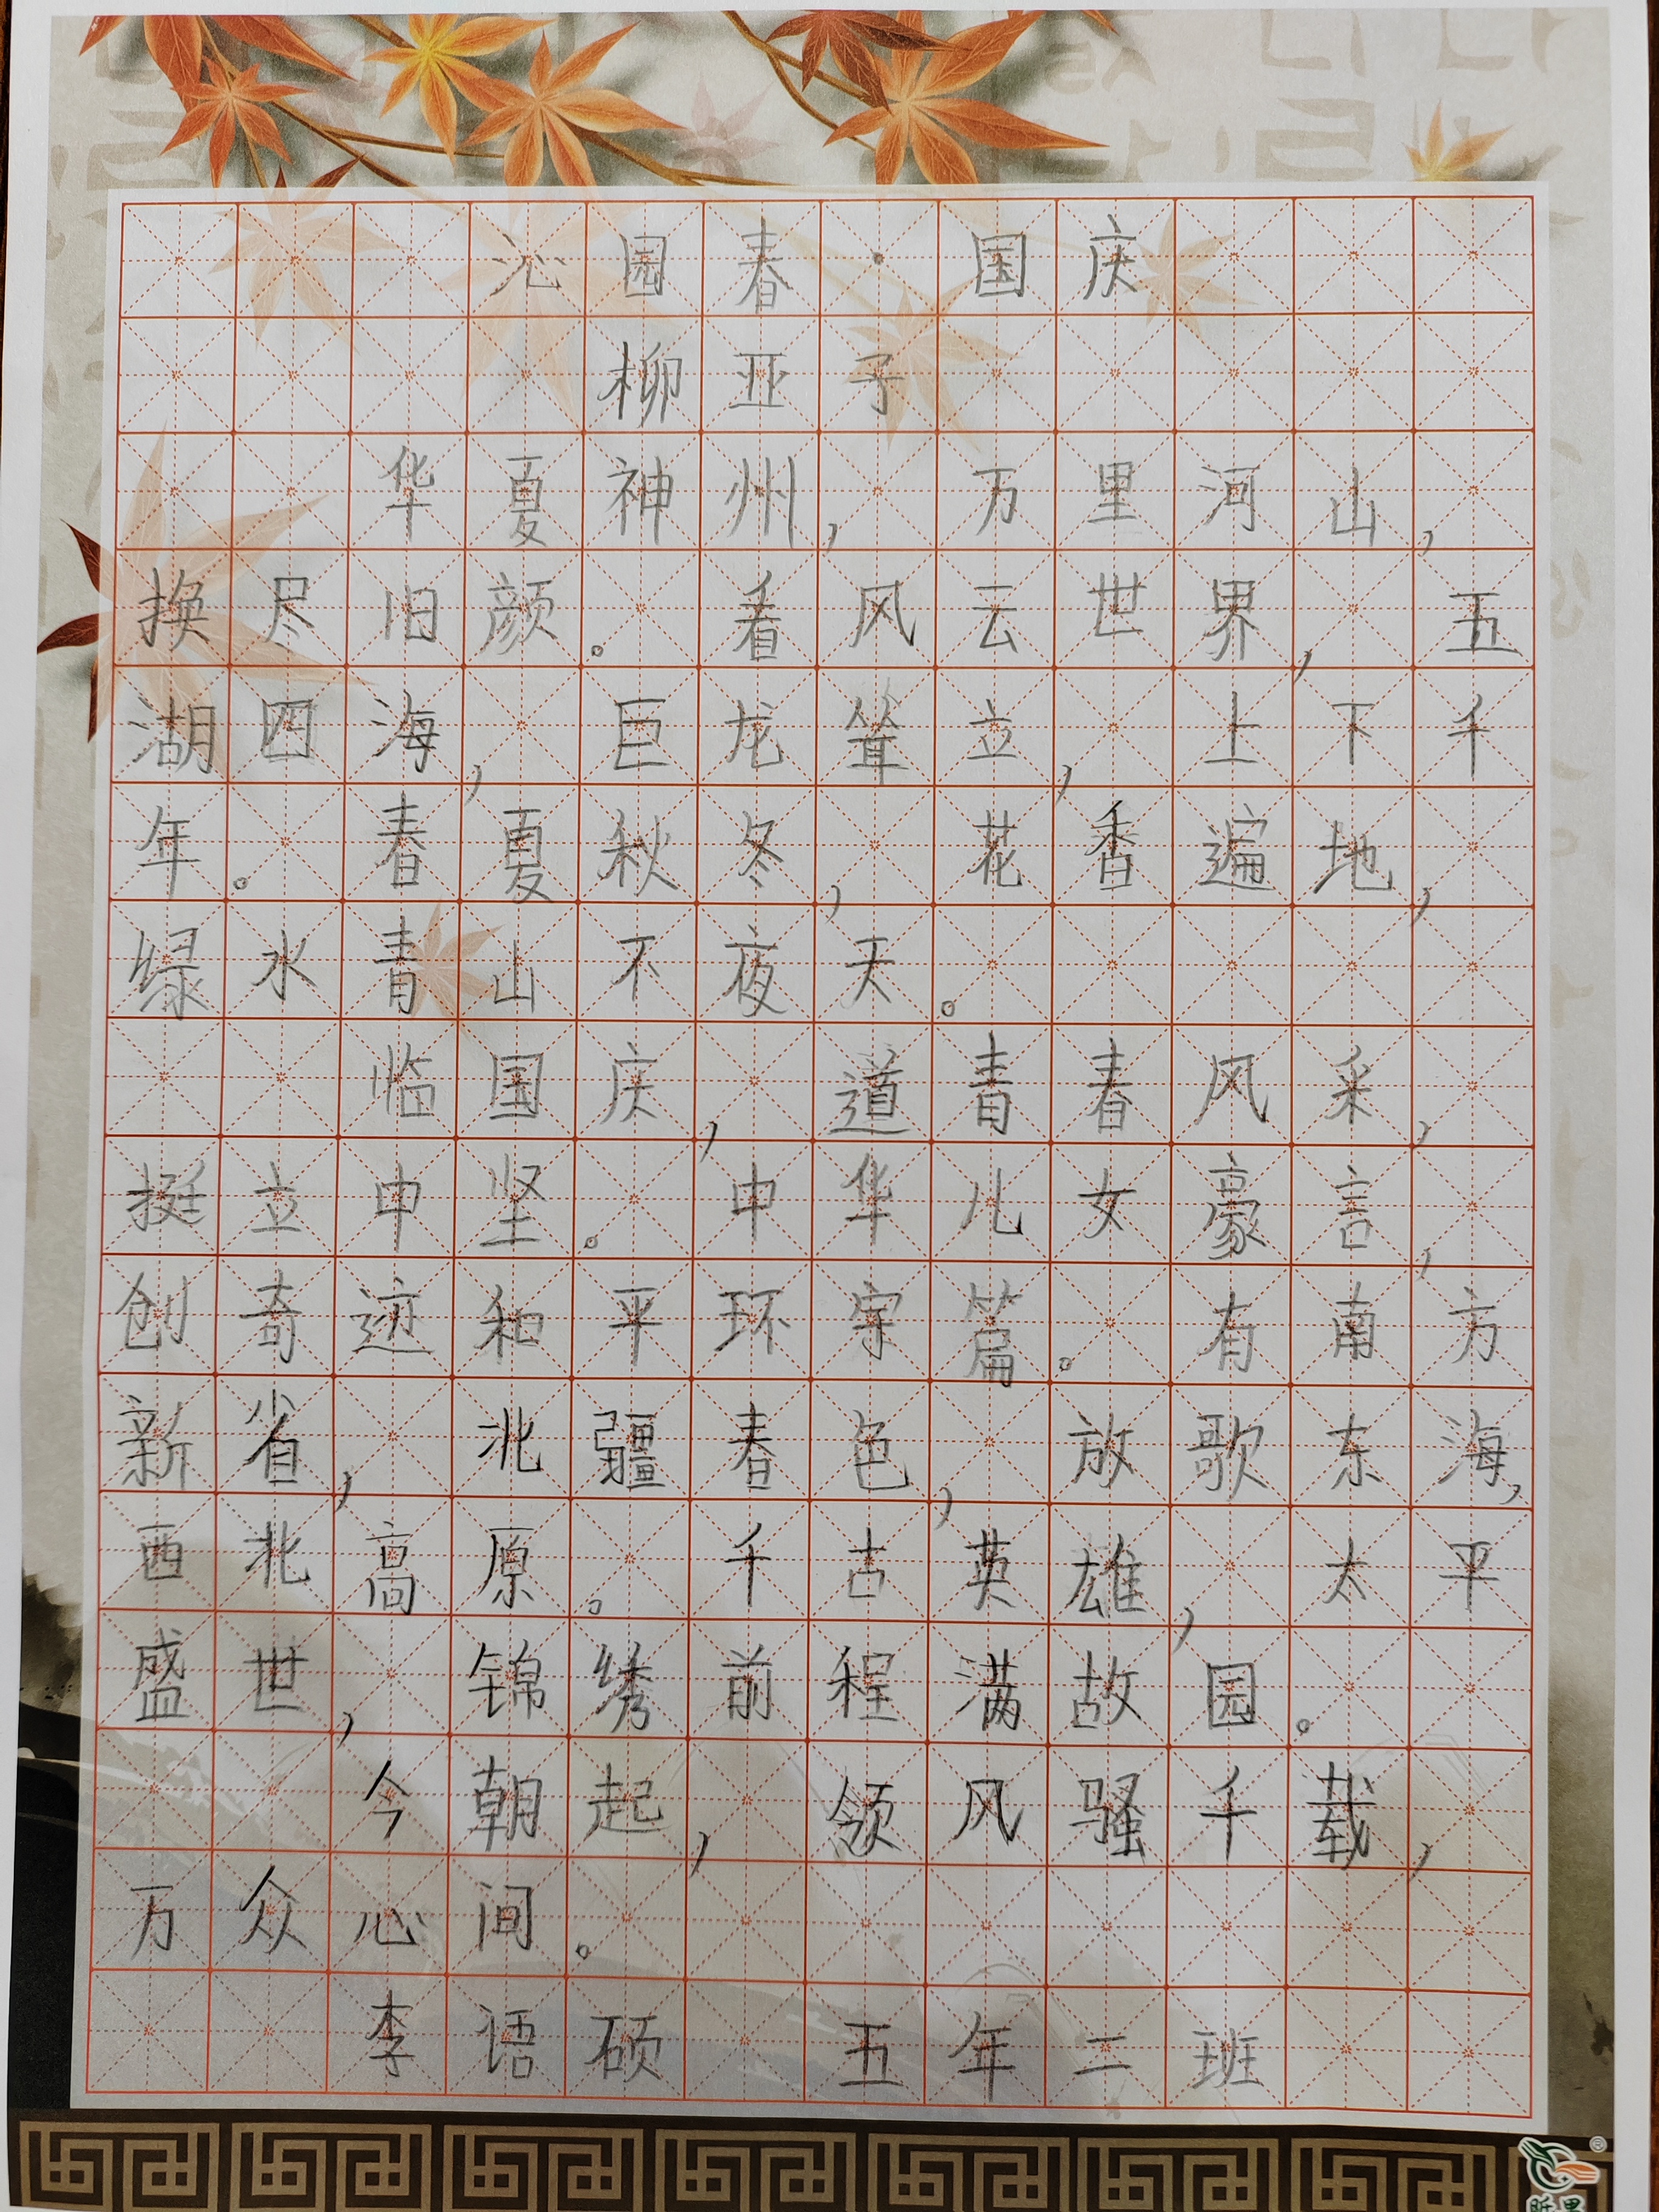 沁园春·国庆
柳亚子
华夏神州，万里河山，
换尽旧颜。看风云世界，五
湖四海，巨龙耸立，上下千
年。春夏秋冬，花香遍地，
绿水青山不夜天。
临国庆，道青春风采，
挺立中坚。中华儿女豪言，
创奇迹和平环宇篇。有南方
新省，北疆春色，放歌东海，
西北高原。千古英雄，太平
盛世，锦绣前程满故园。
今朝起，领风骚千载，
万众心间。
李语硕 五年二班